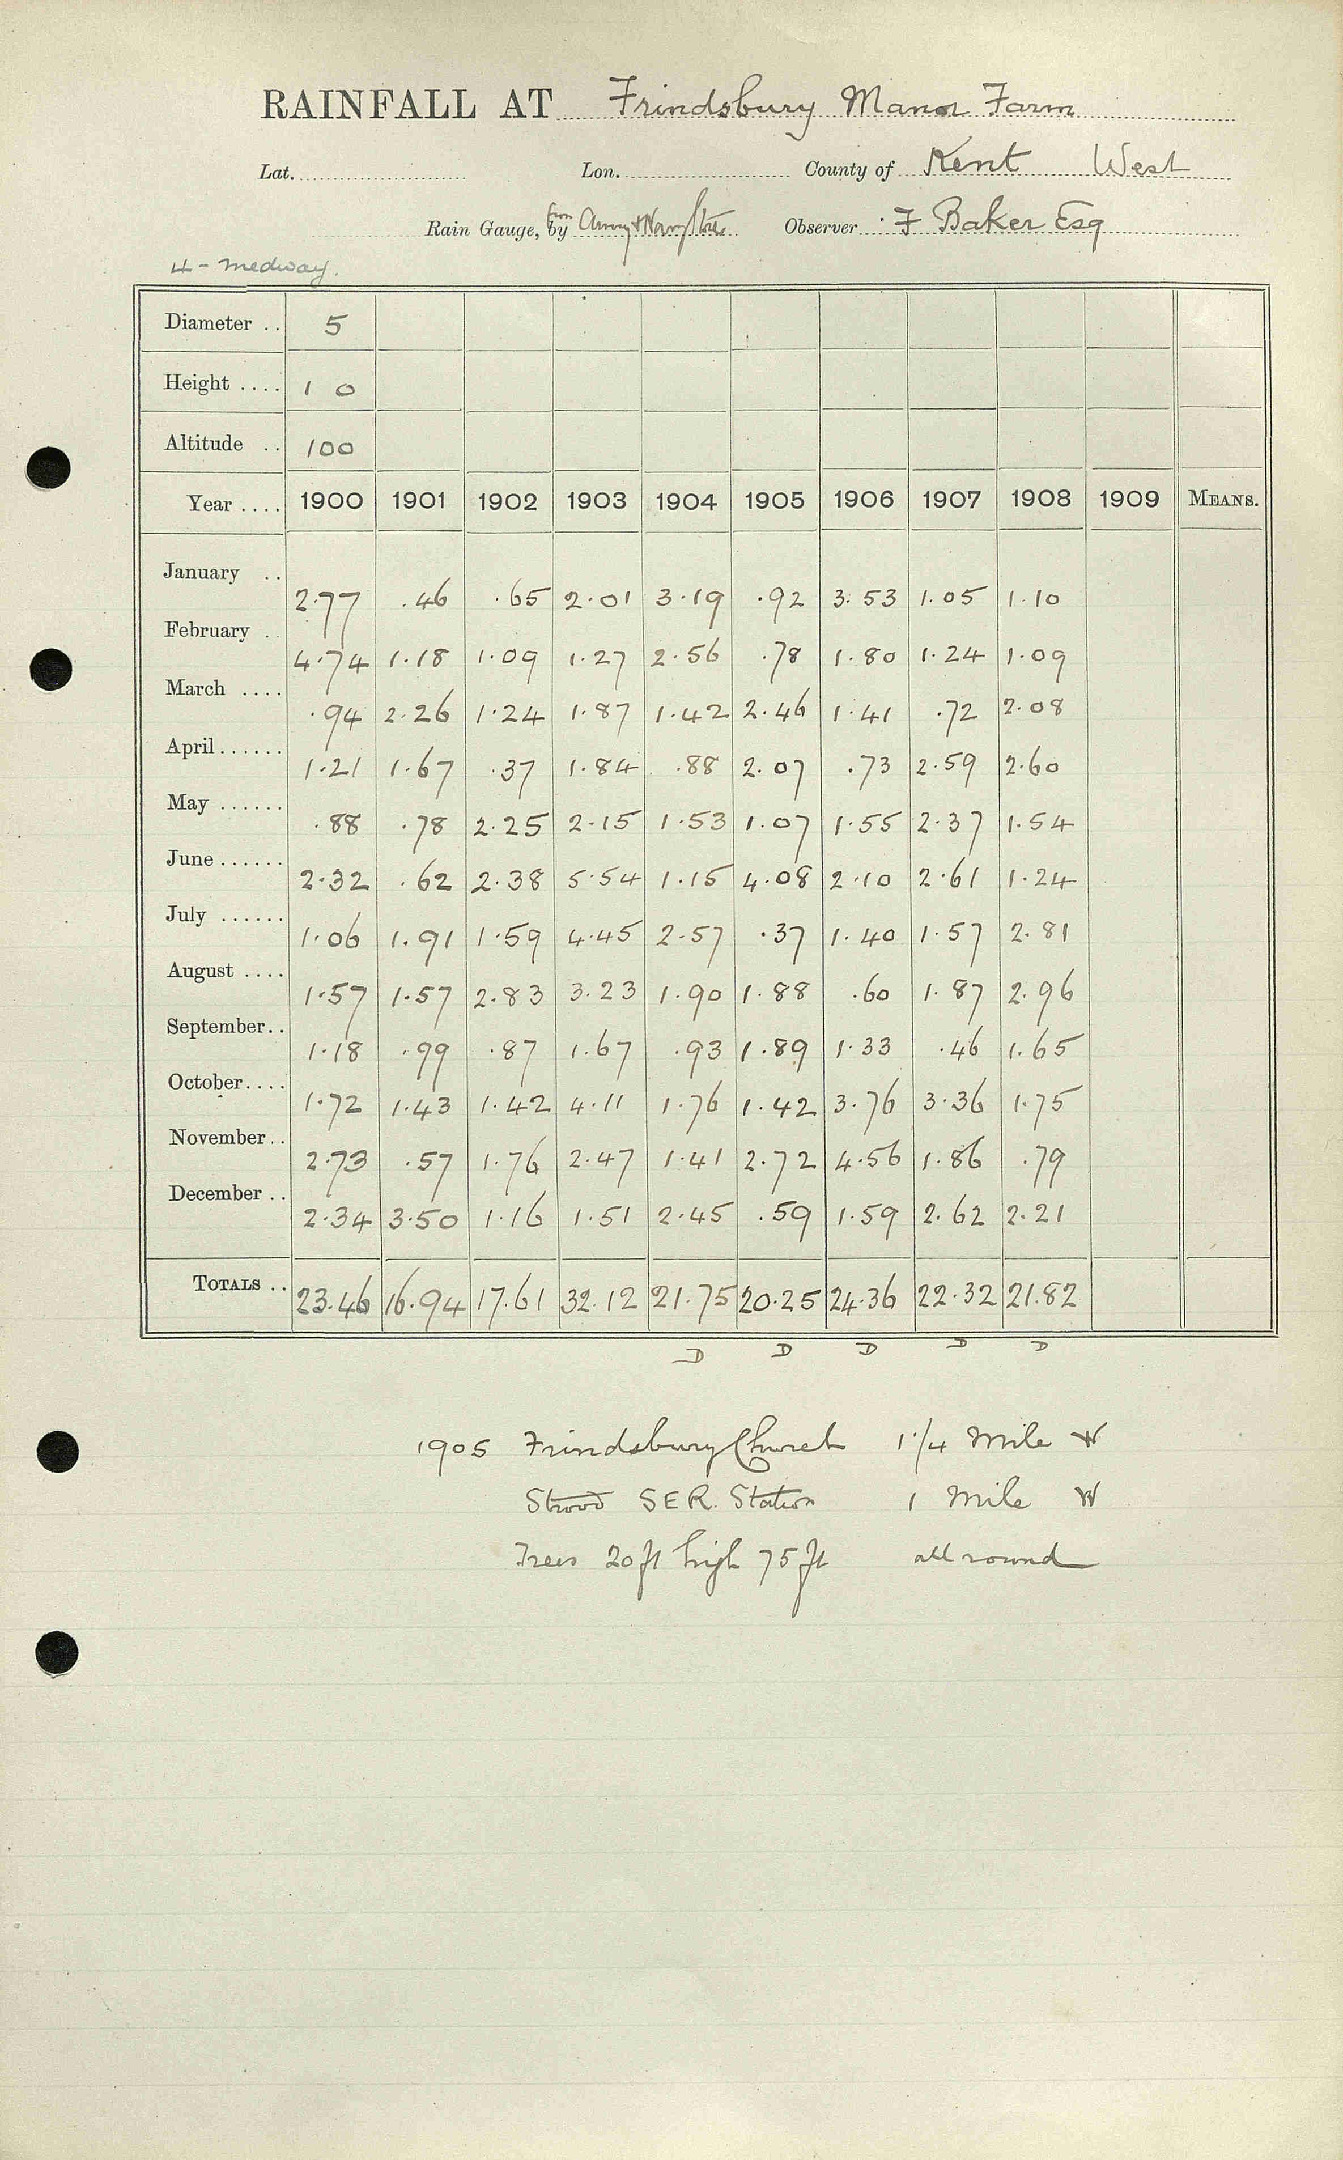 RAINFALL AT Frindsbury Manor Farm
Lat. Lon. County of Kent West
Rain Gauge, by from Army & Navy Stores Observer F Baker Esq
4 - Medway.
Diameter .. 5
Height .... 1 0
Altitude .. 100
Year .... 1900 1901 1902 1903 1904 1905 1906 1907 1908 1909 MEANS.
January .. 2.77 .46 .65 2.01 3.19 .92 3.53 1.05 1.10
February .. 4.74 1.18 1.09 1.27 2.56 .78 1.80 1.24 1.09
March .... .94 2.26 1.24 1.87 1.42 2.46 1.41 .72 2.08
April ...... 1.21 1.67 .37 1.84 .88 2.07 .73 2.59 2.60
May ...... .88 .78 2.25 2.15 1.53 1.07 1.55 2.37 1.54
June ...... 2.32 .62 2.38 5.54 1.15 4.08 2.10 2.61 1.24
July ...... 1.06 1.91 1.59 4.45 2.57 .37 1.40 1.57 2.81
August .... 1.57 1.57 2.83 3.23 1.90 1.88 .60 1.87 2.96
September.. 1.18 .99 .87 1.67 .93 1.89 1.33 .46 1.65
October.... 1.72 1.43 1.42 4.11 1.76 1.42 3.76 3.36 1.75
November.. 2.73 .57 1.76 2.47 1.41 2.72 4.56 1.86 .79
December .. 2.34 3.50 1.16 1.51 2.45 .59 1.59 2.62 2.21
TOTALS .. 23.46 16.94 17.61 32.12 21.75 20.25 24.36 22.32 21.82
D D D D D
1905 Frindsbury Church 1 1/4 Mile W
Strood SER. Station 1 Mile W
Trees 20 ft high 75 ft all round